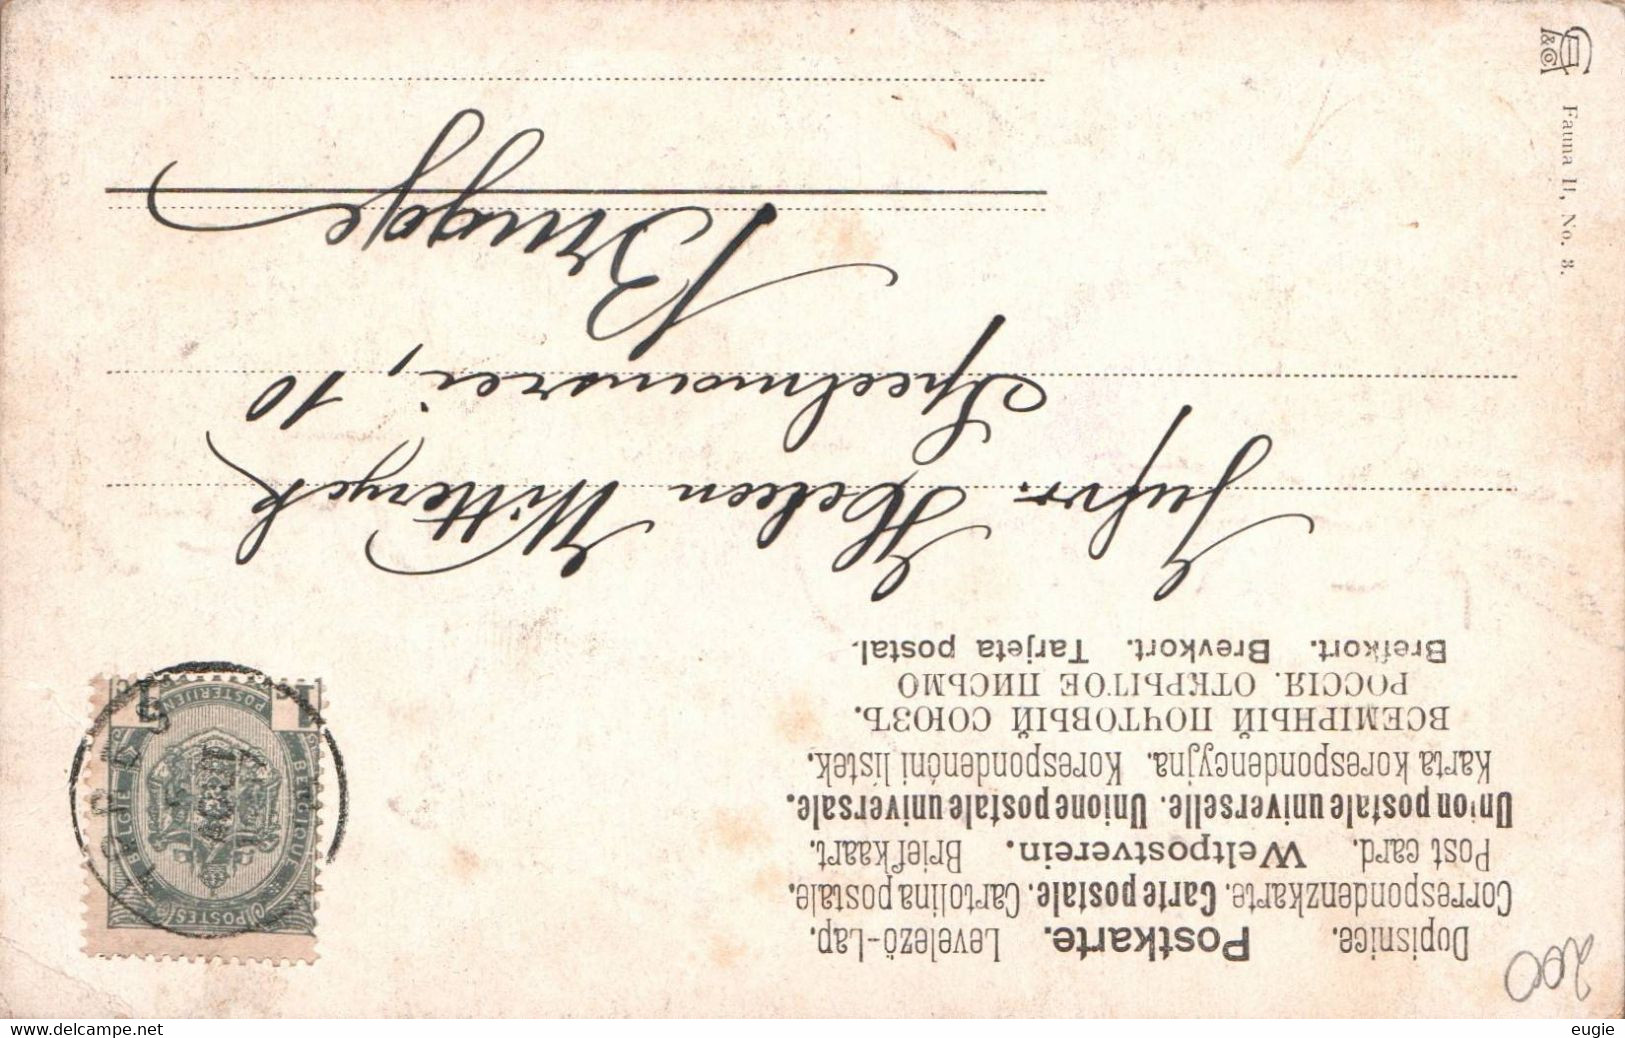 Dopisnice. Postkarte. Levelező-Lap.
Correspondenzkarte. Carte postale. Cartolina postale.
Post card. Weltpostverein. Briefkaart.
Union postale universelle. Unione postale universale.
Karta korespondencyjna. Korespondenční lístek.
ВСЕМІРНЫЙ ПОЧТОВЫЙ СОЮЗЪ.
РОССІЯ. ОТКРЫТОЕ ПИСЬМО
Brefkort. Brevkort. Tarjeta postal.
POSTES
BELGIE BELGIQUE
POSTERIJEN
1c 1c
Jufvr. Heleen Witteryck
Speelmansrei, 10
Brugge
Fauna II, No. 3.
&Co
200
www.delcampe.net
eugie